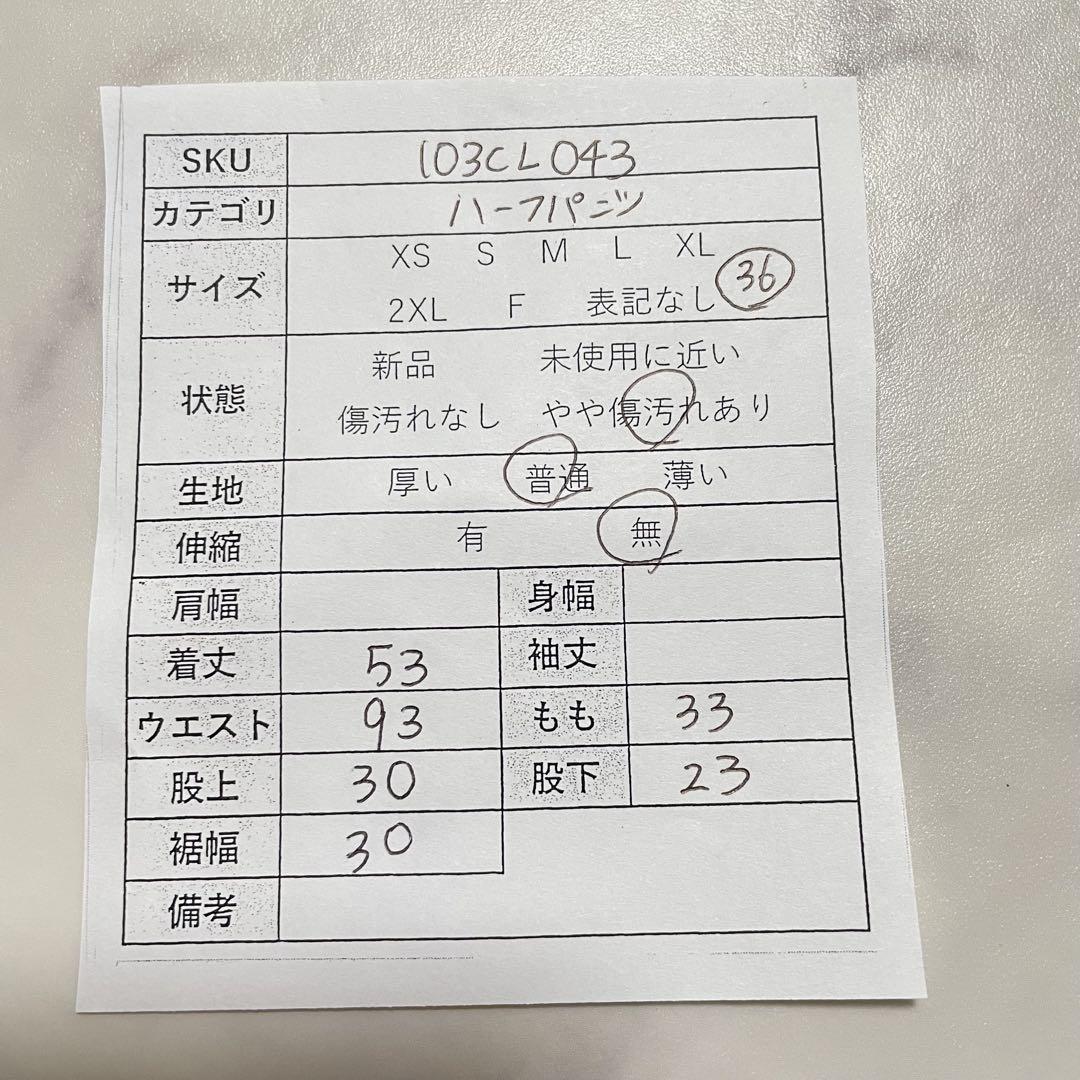 SKU 103CL043
カテゴリ ハーフパンツ
サイズ XS S M L XL
2XL F 表記なし 36
状態 新品 未使用に近い
傷汚れなし やや傷汚れあり
生地 厚い 普通 薄い
伸縮 有 無
肩幅 身幅
着丈 53 袖丈
ウエスト 93 もも 33
股上 30 股下 23
裾幅 30
備考